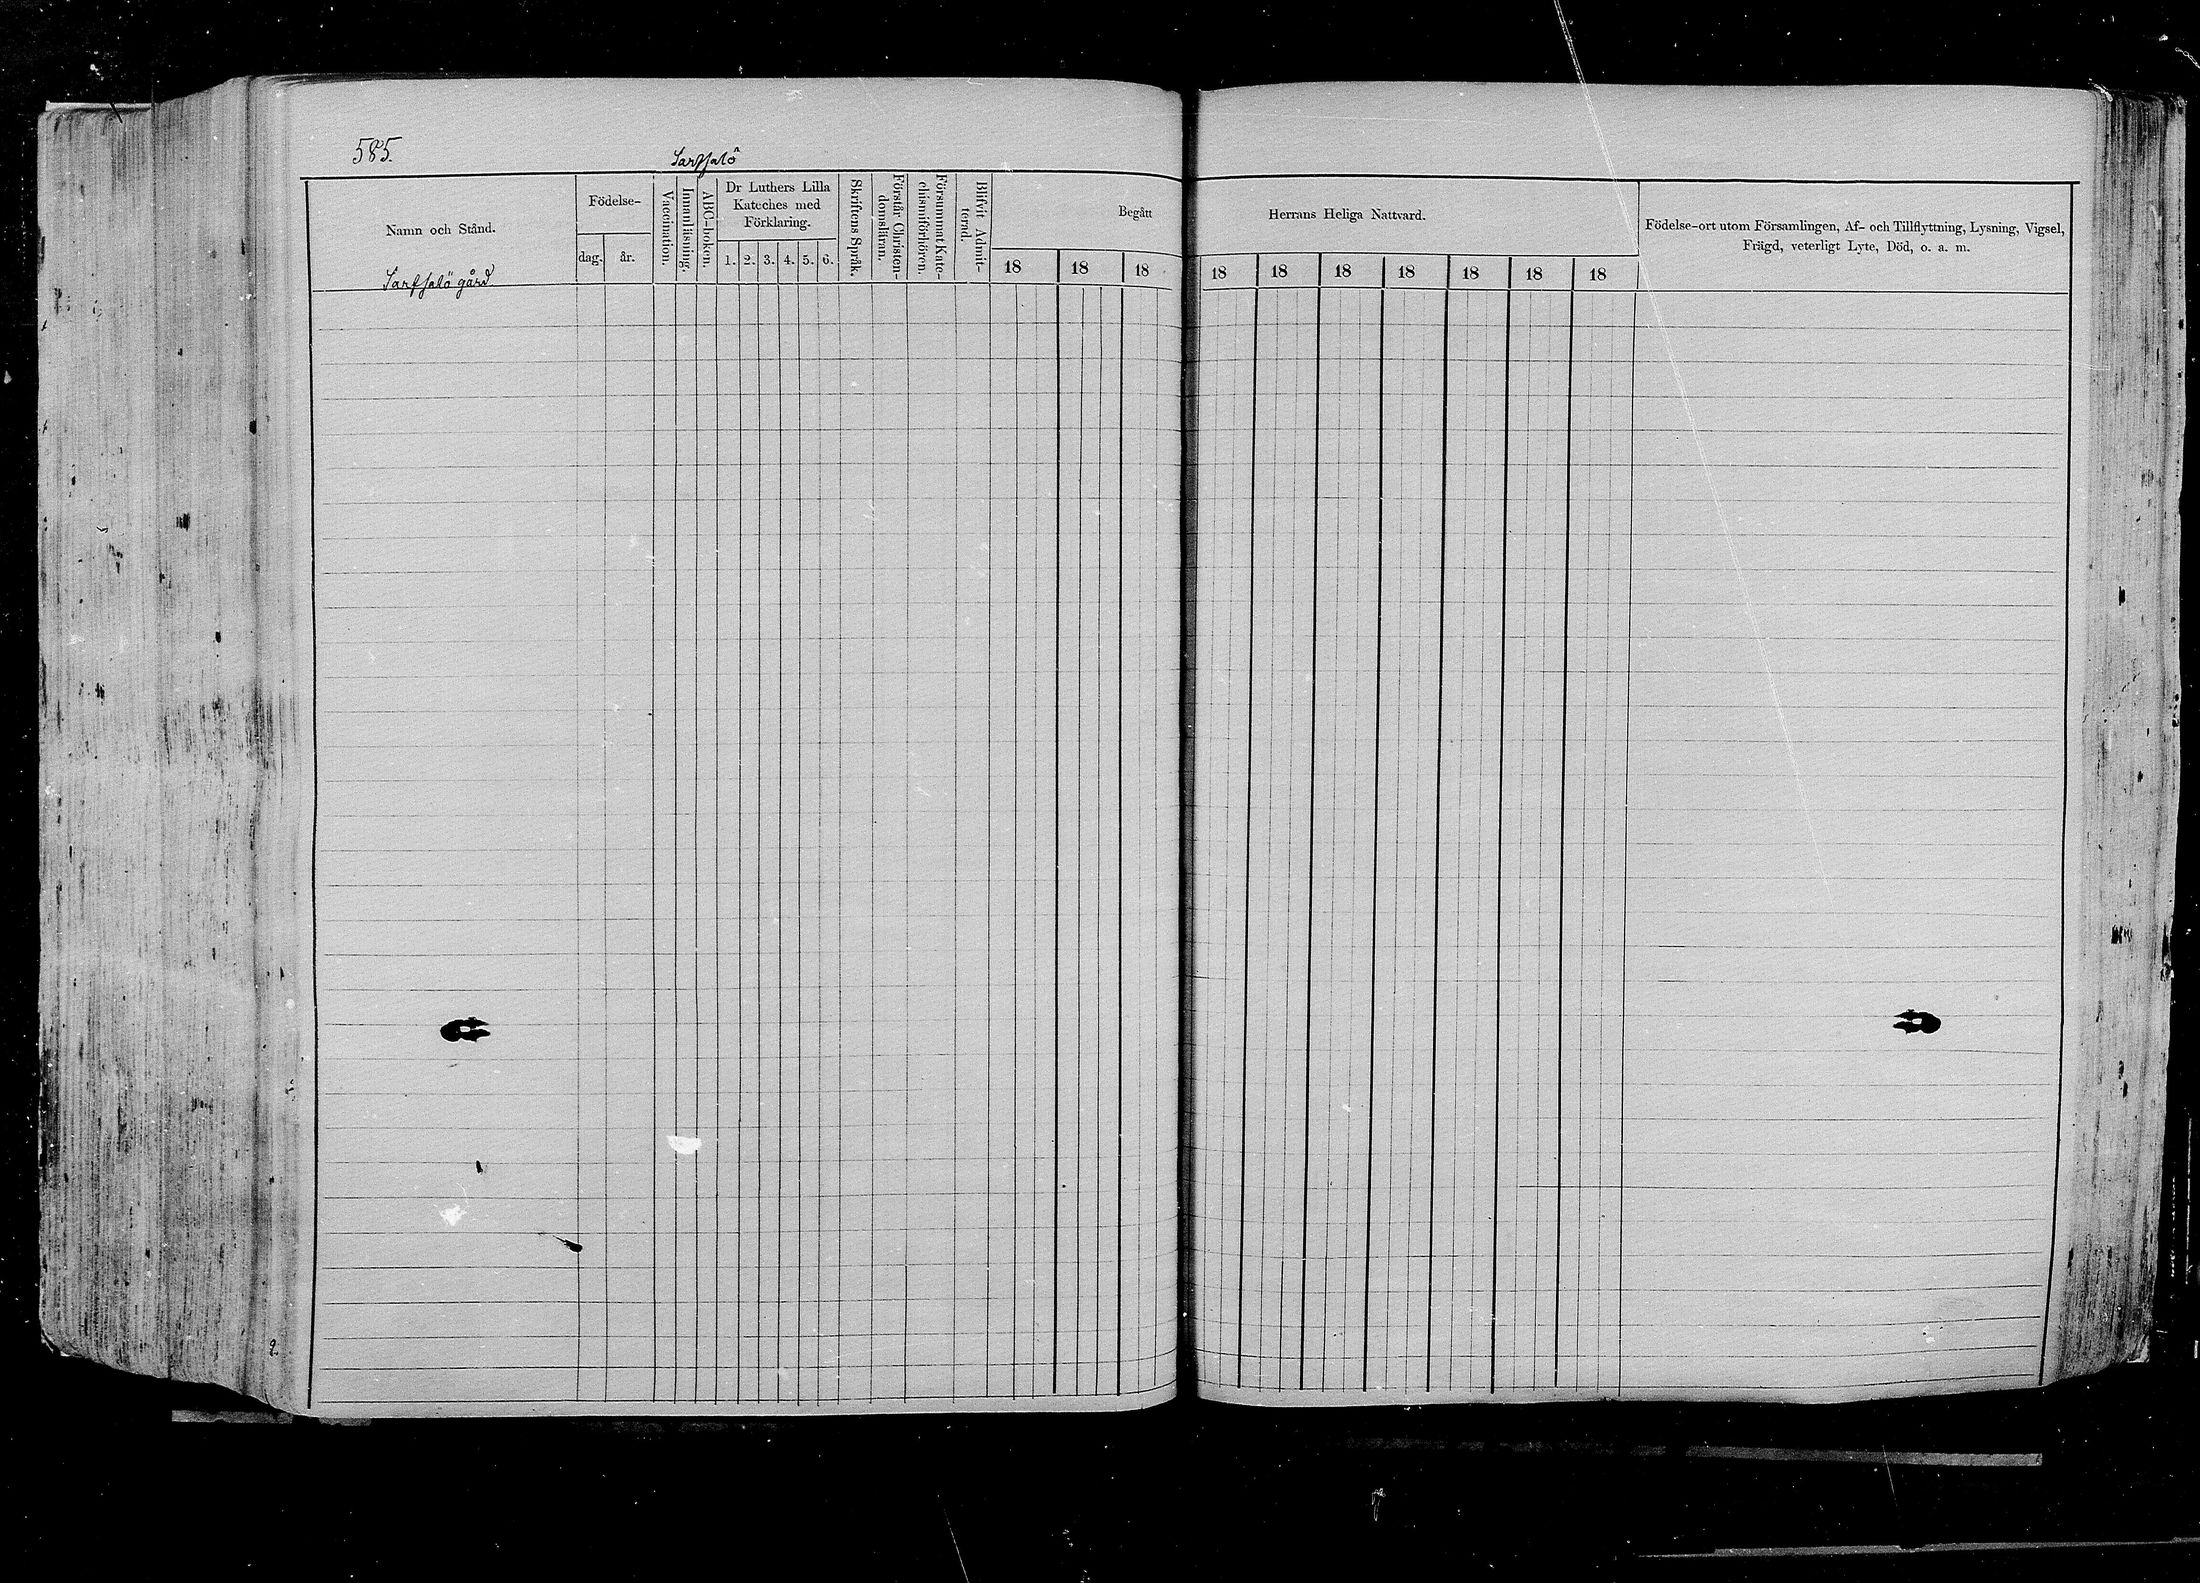 585.
Sarfsalö
Namn och Stånd.
Födelse-
dag.
år.
Vaccination.
Innanläsning.
ABC-boken.
Dr Luthers Lilla
Kateches med
Förklaring.
1. 2. 3. 4. 5. 6.
Skriftens Språk.
Förstår Christen-
domsläran.
Försummat Kate-
chismiförhören.
Blifvit Admit-
terad.
Begått
Herrans Heliga Nattvard.
18 18 18 18 18 18 18 18 18 18
Födelse-ort utom Församlingen, Af- och Tillflyttning, Lysning, Vigsel,
Frägd, veterligt Lyte, Död, o. a. m.
Sarfsalö gård